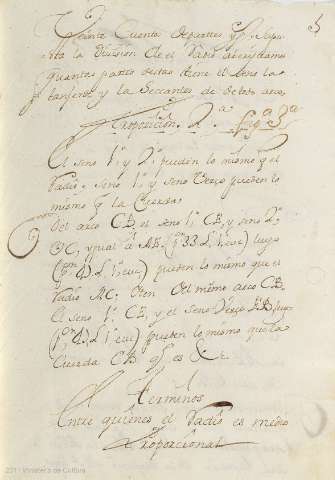 5
Treinta Cuento De partes y supu
esta la Division de el Radio abeiguamos
quantas partes destas tiene el seno las
tangente y la Seccantes de dichos arcos
Proposicion. 2.ª fig.ª 3.ª
El seno 1º y 2º pueden lo mismo q el
Radio. seno 1º y seno Terzo pueden lo
mismo q la Cuerda
Del arco CB, el seno 1º CE, y seno 2º
igual â (pºr 33. L. 1º euc) luego
(pºr 47. L. 1º euc) pueden lo mismo que el
Radio AC, Iten Del mismo arco CB.
El seno 1º CE, y el seno Terzo EB, luego
(pºr 47. L. 1º euc) pueden lo mismo que la
Cuerda CB q es &c.
Terminos
Entre quienes el Radio es medio
Proporcional
221 : Ministerio de Cultura